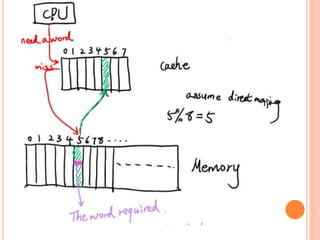 CPU
need a word
0 1 2 3 4 5 6 7
miss
Cache
assume direct mapping
5 % 8 = 5
0 1 2 3 4 5 6 7 8 ....
Memory
The word required.